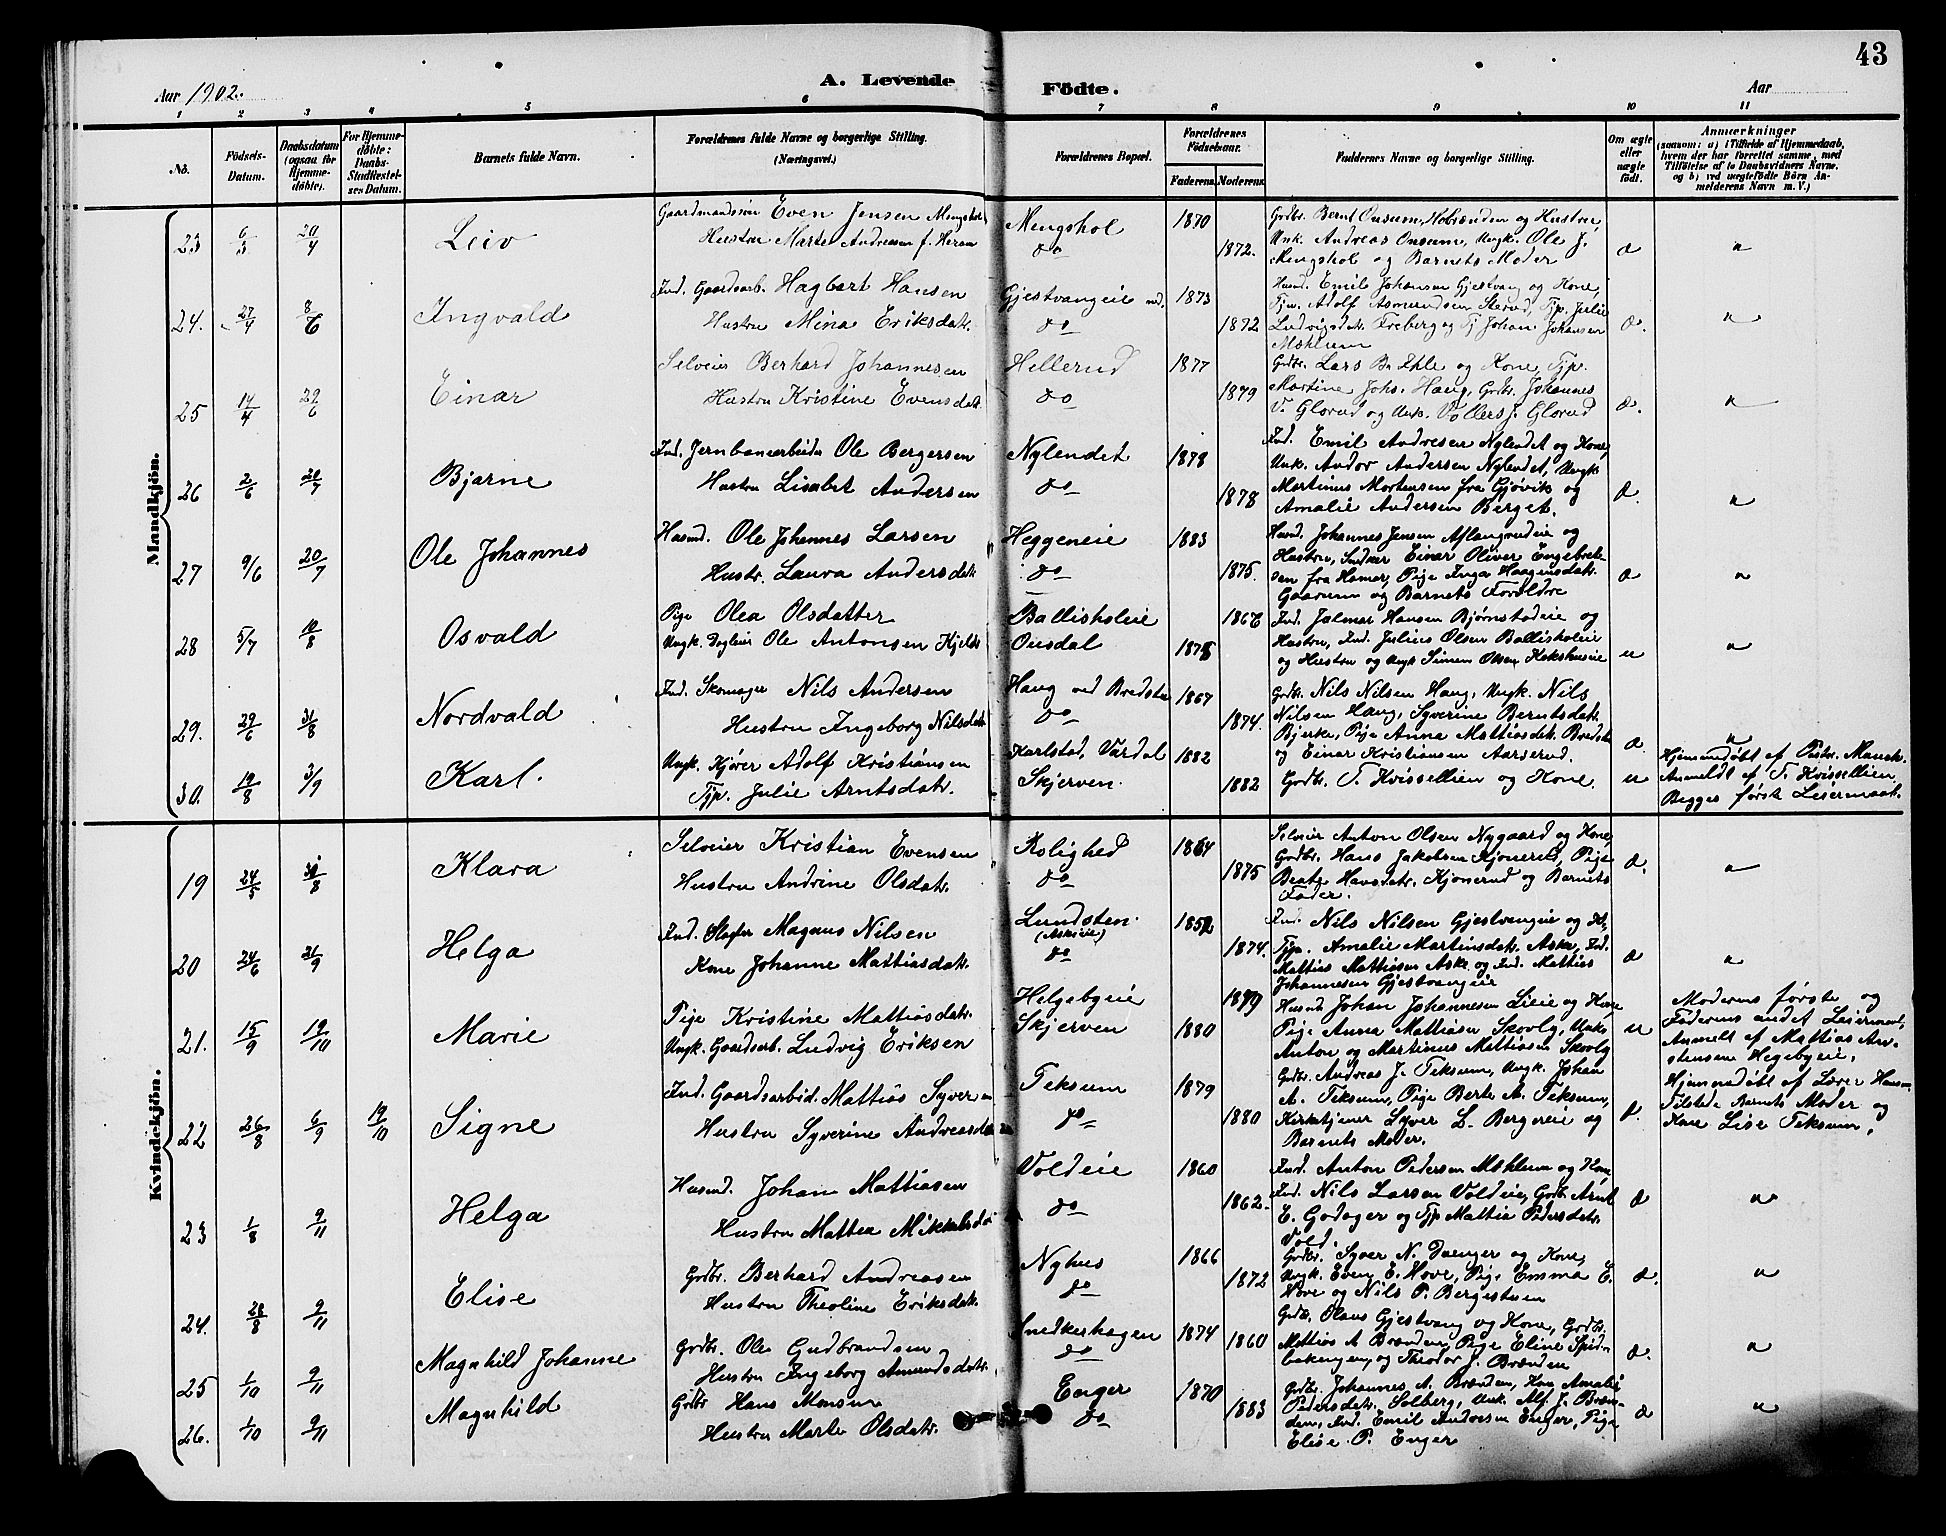 43
Aar 1902.
A. Levende Födte.
Aar
1 2 3 4 5 6 7 8 9 10 11
No.
Födsels-Datum.
Daabsdatum (ogsaa for Hjemmedöbte).
For Hjemmedöbte: Daabs-Stadfæstelses Datum.
Barnets fulde Navn.
Forældrenes fulde Navne og borgerlige Stilling. (Næringsvei.)
Forældrenes Bopæl.
Forældrenes Födselsaar.
Faderens. Moderens.
Faddernes Navne og borgerlige Stilling.
Om ægte eller uægte födt.
Anmærkninger
(saasom: a) i Tilfælde af Hjemmedaab, hvem der har forrettet samme, med Tilföielse af to Daabsvidners Navne, og b) ved uægtefödte Börn Anmelderens Navn m. V.)
Mandkjön.
23 6/3 20/4 Leiv
Gaardmandssön Even Jensen Mengshol
Hustru Marte Andresen f. Heram
Mengshol
do
1870
1872.
Grdbr. Bernt Onsum, Hobrænden og Hustru,
Unk. Andreas Onsum, Ungk. Ole J.
Mengshol og Barnets Moder
æ "
24. 27/4 8/6 Ingvald
Ind. Gaardsarb. Hagbart Hansen
Hustru Mina Eriksdatr.
Gjestvangeie ned.
do
1873
1872
Husmd. Emil Johansen Gjestvang og Kone,
Tjm. Adolf Asmundsen Sterud, Tjp. Julie
Ludvigsdtr. Freberg og Tj Johan Johansen
Mæhlum
æ. "
25 14/4 29/6 Einar
Selveier Berhard Johannesen
Hustru Kristine Evensdatr.
Hellerud
do
1877
1879
Grdbr. Lars Br. Ihle og Kone, Tjp.
Martine Johs. Haug, Grdbr. Johannes
V. Glorud og Unk. Vollers J. Glorud
æ. "
26 2/6 20/7 Bjarne
Ind. Jernbanearbeider Ole Bergersen
Hustru Lisabet Andersen
Nylendet
do
1878
1878
Ind. Emil Andresen Nylendet og Kone,
Unk. Andor Andersen Nylendet, Ungk
Martinus Mortensen fra Gjøvik og
Amalie Andersen Berget.
æ. "
27 9/6 20/7 Ole Johannes
Husmd. Ole Johannes Larsen
Hustr. Laura Andersdatr.
Heggeneie
do
1883
1875.
Husmd. Johannes Jensen Aflangrudeie og
Hustru, Snedker Einar Oliver Engebret-
sen fra Hamar, Pige Inga Haagensdatr.
Gaarum og Barnets Forældre
æ "
28 5/7 10/8 Osvald
Pige Olea Olsdatter
Ungk. Dagleier Ole Antonsen Kjelds
Ballisholeie
Onsdal
1866
1878
Ind. Jalmar Hansen Bjørnstadeie og
Hustru, Ind. Julius Olsen Ballisholeie
og Hustru og Ungk Simen Olsen Kokshuseie
u "
29. 29/6 31/8 Nordvald
Ind. Skomager Nils Andersen
Hustru Ingeborg Nilsdatr.
Haug ved Bredsten
do
1867
1874.
Grdbr. Nils Nilsen Haug, Ungk. Nils
Nilsen Haug, Syverine Berntsdatr.
Bjerke, Pige Anna Mattiasdatr. Bredsten
og Einar Kristiansen Aarderud.
æ. "
30. 19/8 3/9 Karl.
Ungk. Kjører Adolf Kristiansen
Tjp. Julie Arntsdatr.
Karlstad, Vardal
Skjerven.
1882
1882
Grdbr. T. Kvissellien og Kone.
u
Hjemmedøbt af Pastor Munch.
Anmeldt af T. Kvissellien.
Begges første Leiermaal.
Kvindekjön.
19 24/5 31/8 Klara
Selveier Kristian Evensen
Hustru Andrine Olsdatr.
Rolighed
do
1864
1875
Selveier Anton Olsen Nygaard og Kone,
Grdbr. Hans Jakobsen Kjonerud, Pige
Beate Hansdatr. Kjonerud og Barnets
Fader.
æ. "
20 24/6 21/9 Helga
Ind. Slagter Magnus Nilsen
Kone Johanne Mattiasdatr.
Lundsten.
(Askeie)
do
1852
1874.
Ind. Nils Nilsen Gjestvangeie og H.,
Tjp. Amalie Martinsdatr. Aske, Ind.
Mattias Mattiasen Aske og Ind. Mattias
Johannesen Gjestvangeie
æ "
21. 15/9 19/10 Marie
Pige Kristine Mattiasdatr.
Ungk. Gaardsarb. Ludvig Eriksen
Helgebyeie
Skjerven
1879
1880
Husmd Johan Johannesen Lieie og Kone
Pige Anna Mattiasen Skovlg, Unk.
Anton og Martinus Mattiasen Skovlg
u
Moderens første og
Faderens andet Leiermaal,
Anmeldt af Mattias Arn-
stensen Hegebyeie.
22 26/8 6/9 19/10 Signe
Ind. Gaardsarbeid. Mattias Syversen
Hustru Syverine Andreasdatr.
Teksum
do
1879
1880
Grdbr. Andreas J. Teksum, Ungk. Johan
A. Teksum, Pige Berte A. Teksum,
Kirketjener Syver L. Bergseie og
Barnets Moder.
æ.
Hjemmedøbt af Lærer Hansen
Tilstede Barnets Moder og
Kone Lise Teksum.
23 1/8 9/11 Helga
Husmd. Johan Mattiasen
Hustru Mattea Mikkelsdatr
Voldeie
do
1860
1862.
Ind. Anton Pedersen Mæhlum og Kone,
Ind. Nils Larsen Voldeie, Grdb. Arnt
E. Godager og Tjp Mattia Pedersdatr.
Vold.
æ "
24. 28/8 9/11 Elise
Grdbr. Berhard Andreasen
Hustru Theoline Eriksdatr.
Nyhus
do
1866
1872
Grdbr. Syver N. Duenger og Kone,
Ungk. Even E. Hove, Pige Emma E.
Hove og Nils P. Bergestuen
æ. "
25 1/10 9/11 Magnhild Johanne
Grdbr. Ole Gudbrandsen
Hustru Ingeborg Amundsdatr.
Snedkerhagen
do
1874
1860
Grdbr. Olaus Gjestvang og Kone, Grdbr.
Mattias A Brænden, Pige Eline Spid-
bakengen, og Theodor J. Brænden
æ. "
26. 1/10 9/11 Magnhild
Grdbr Hans Monsen
Hustru Marte Olsdatr.
Enger
do
1870
1883
Grdbr. Johannes A. Brænden, Kone Amalie
Pedersdatr. Solberg, Unk. Alf. J. Bræn-
den, Ind. Emil Andresen Enger, Pige
Elise P. Enger
æ "